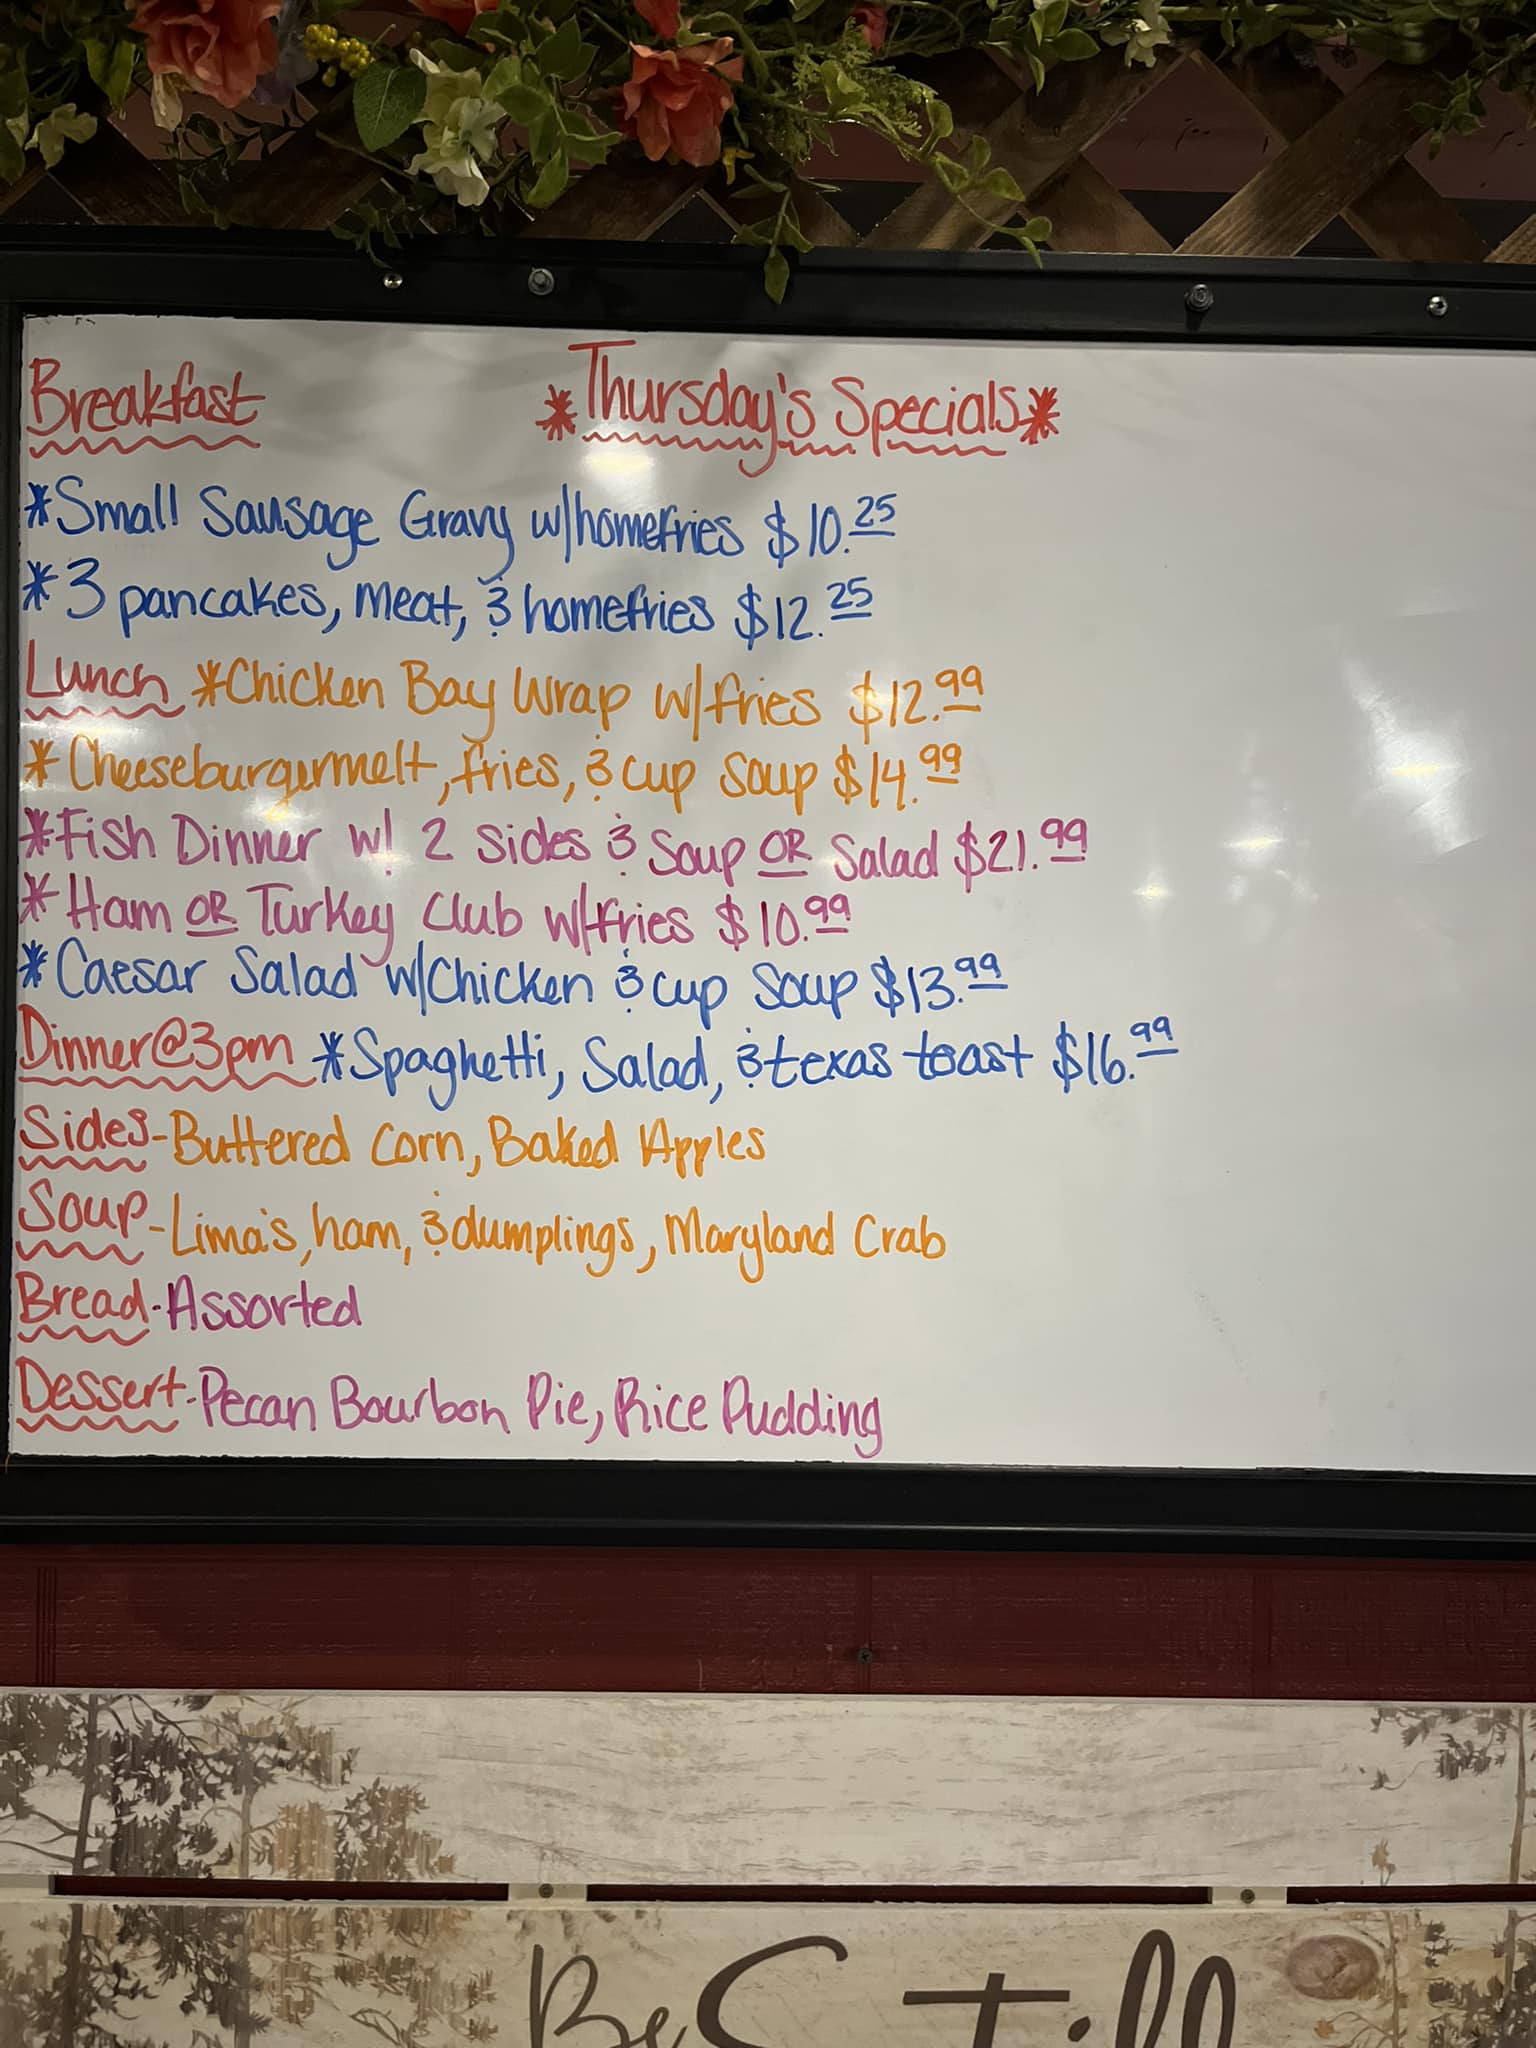 Breakfast *Thursday's Specials*
*Small Sausage Gravy w/homefries $10.25
*3 pancakes, meat, & homefries $12.25
Lunch *Chicken Bay Wrap w/fries $12.99
*Cheeseburgermelt, fries, & cup Soup $14.99
*Fish Dinner w/ 2 sides & Soup OR Salad $21.99
*Ham OR Turkey Club w/fries $10.99
*Caesar Salad w/Chicken & cup Soup $13.99
Dinner@3pm *Spaghetti, Salad, & texas toast $16.99
Sides-Buttered Corn, Baked Apples
Soup-Lima's, ham, & dumplings, Maryland Crab
Bread-Assorted
Dessert-Pecan Bourbon Pie, Rice Pudding
Be Still